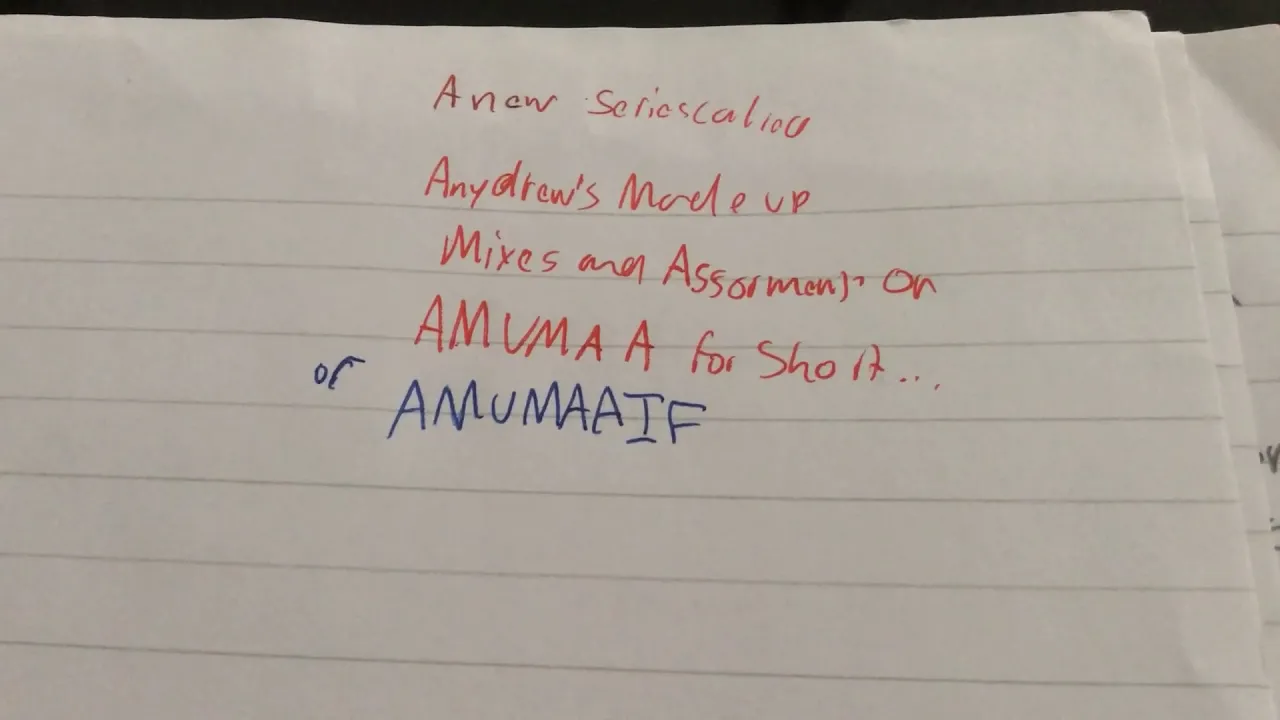 A new series called
Anydrew's Made up
Mixes and Assorments Or
AMUMAA for Short...
or AMUMAAIF